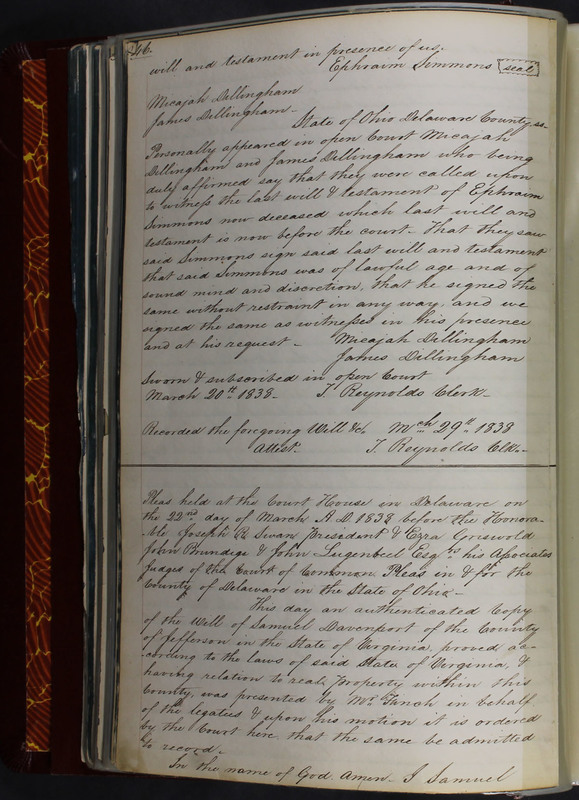 46.
will and testament in presence of us.
Ephraim Simmons seal
Micajah Dillingham
James Dillingham
State of Ohio Delaware County, ss.
Personally appeared in open Court Micajah
Dillingham and James Dillingham who being
duly affirmed say that they were called upon
to witness the last will & testament of Ephraim
Simmons now deceased which last will and
testament is now before the court - That they saw
said Simmons sign said last will and testament
that said Simmons was of lawful age and of
sound mind and discretion, that he signed the
same without restraint in any way, and we
signed the same as witnesses in his presence
and at his request - Micajah Dillingham
James Dillingham
Sworn & subscribed in open Court
March 20th 1838 - T. Reynolds Clerk -
Recorded the foregoing Will &c. Mch 29th 1838
Attest. T. Reynolds Clk. -
Pleas held at the Court House in Delaware on
the 22nd day of March A.D. 1838 before the Honora-
ble Joseph R Swan President & Ezra Griswold
John Brundige & John Lugenbeel Esqrs his Associates
Judges of the Court of Common Pleas in & for the
County of Delaware in the State of Ohio -
This day an authenticated Copy
of the Will of Samuel Davenport of the County
of Jefferson in the State of Verginia, proved ac-
cording to the laws of said State of Verginia, &
having relation to real property within this
County, was presented by Mr. Finch in behalf
of the legatees & upon his motion it is ordered
by the Court here, that the same be admitted
to record. -
In the name of God Amen - I Samuel